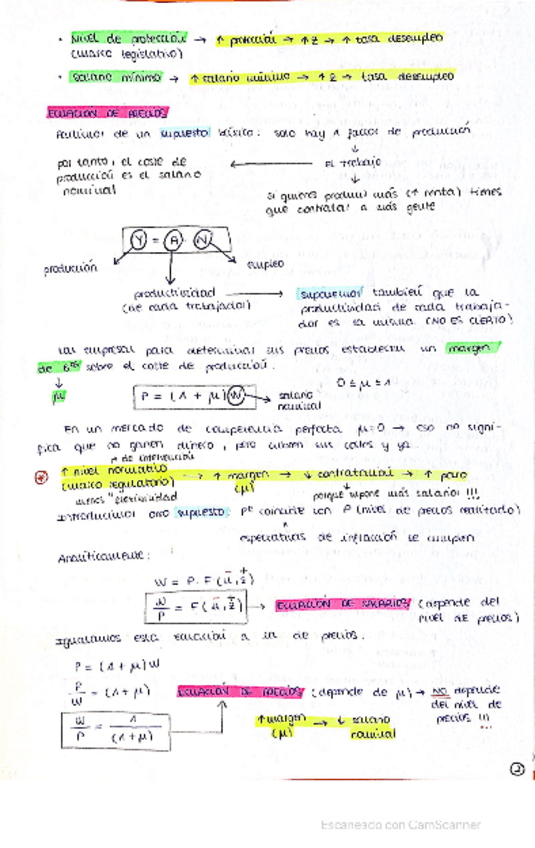 · Nivel de protección → ↑ protección → ↑ z → ↑ tasa desempleo
(marco legislativo)
· Salario mínimo → ↑ salario mínimo → ↑ z → tasa desempleo
ECUACIÓN DE PRECIOS
Partimos de un supuesto básico: solo hay 1 factor de producción
↓
por tanto, el coste de ← el trabajo
producción es el salario ↓
nominal
si quieres producir más (↑ renta) tienes
que contratar a más gente
Y = A · N
producción
empleo
productividad → suponemos también que la
(de cada trabajador) productividad de cada trabaja-
dor es la misma (NO ES CIERTO)
Las empresas para determinar sus precios establecen un margen
de Bº sobre el coste de producción.
↓
μ
P = (1 + μ) W → salario
nominal
0 ≤ μ ≤ 1
En un mercado de competencia perfecta μ=0 → eso no signi-
fica que no ganen dinero, pero cubren sus costes y ya.
de intervención
↑ nivel normativo → ↑ margen → ↓ contratación → ↑ paro
(marco regulatorio) (μ) ↓
menos porque supone más salario !!!
Introducimos otro supuesto: Pe coincide con P (nivel de precios realizado)
expectativas de inflación se cumplen
Analíticamente:
W = P · F(u, z)
- +
W/P = F(u, z) → ECUACIÓN DE SALARIOS (depende del
nivel de precios)
Igualamos esta ecuación a la de precios.
P = (1 + μ) W
P/W = (1 + μ) ECUACIÓN DE PRECIOS (depende de μ) → NO depende
del nivel de
precios !!!
W/P = 1/(1 + μ)
↑ margen → ↓ salario
(μ) nominal
2
Escaneado con CamScanner